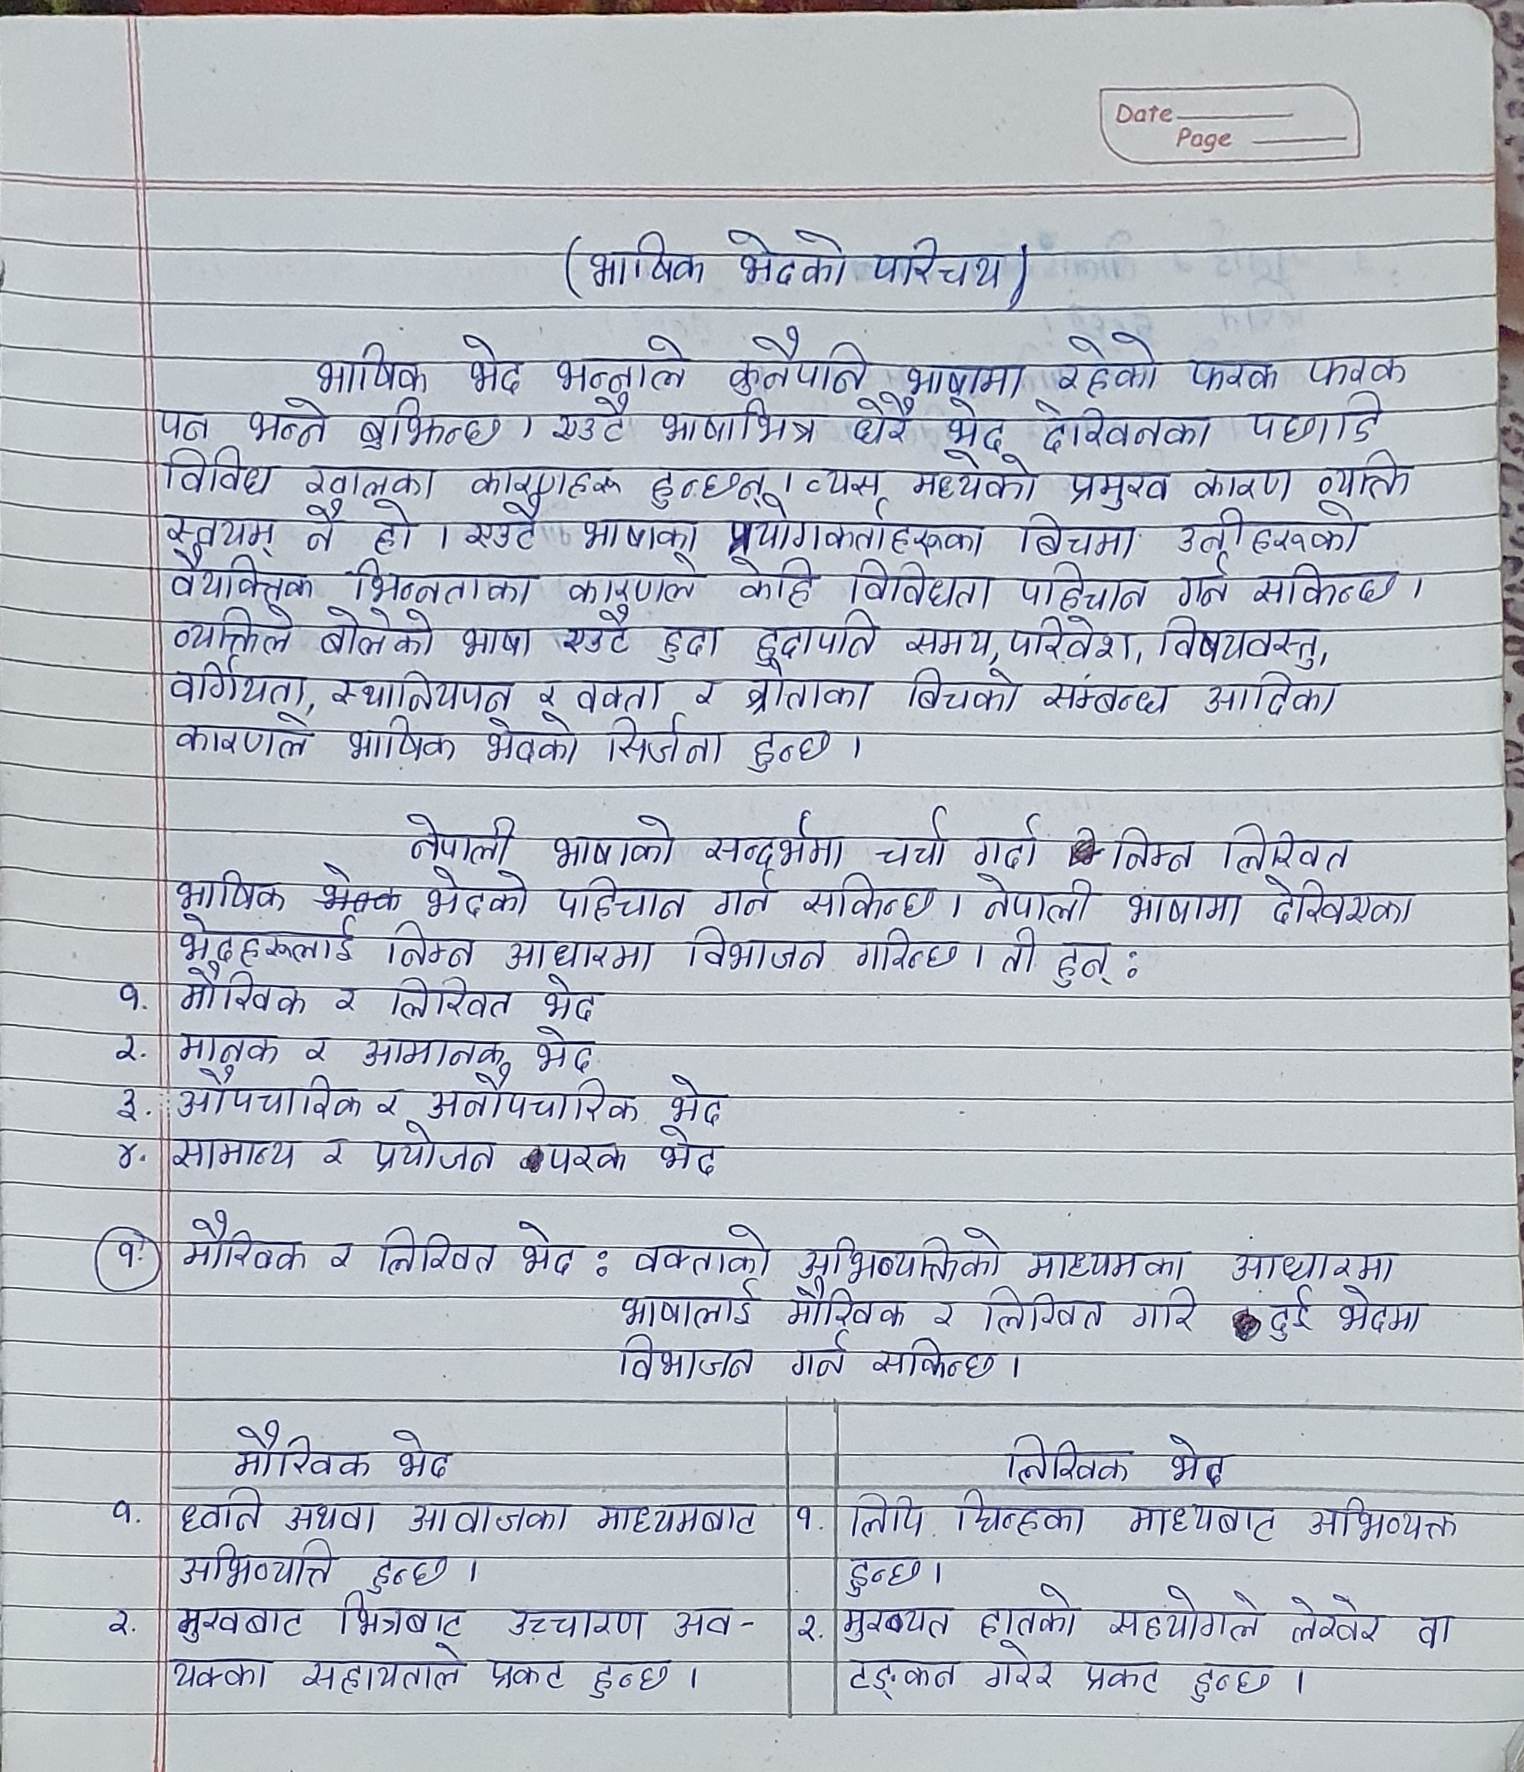 Date
Page
(भाषिक भेदको परिचय)
भाषिक भेद भन्नाले कुनैपनि भाषामा रहेको फरक फरक
पन भन्ने बुझिन्छ। एउटै भाषाभित्र धेरै भेद देखिनका पछाडि
विविध खालका कारणहरू हुन्छन्। त्यस मध्येको प्रमुख कारण व्यक्ति
स्वयम् नै हो। एउटै भाषाका प्रयोगकर्ताहरूका बिचमा उनीहरूको
वैयक्तिक भिन्नताका कारणले केहि विविधता पहिचान गर्न सकिन्छ।
व्यक्तिले बोलेको भाषा एउटै हुदा हुदापनि समय, परिवेश, विषयवस्तु,
वर्गियता, स्थानियपन र वक्ता र श्रोताका बिचको सम्बन्ध आदिका
कारणले भाषिक भेदको सिर्जना हुन्छ।
नेपाली भाषाको सन्दर्भमा चर्चा गर्दा निम्न लिखित
भाषिक भेदको पहिचान गर्न सकिन्छ। नेपाली भाषामा देखिएका
भेदहरूलाई निम्न आधारमा विभाजन गरिन्छ। ती हुन् :
१. मौखिक र लिखित भेद
२. मानक र आमानक भेद
३. औपचारिक र अनौपचारिक भेद
४. सामान्य र प्रयोजन परक भेद
१. मौखिक र लिखित भेद : वक्ताको अभिव्यक्तिको माध्यमका आधारमा
भाषालाई मौखिक र लिखित गरि दुई भेदमा
विभाजन गर्न सकिन्छ।
मौखिक भेद लिखिक भेद
१. ध्वनि अथवा आवाजका माध्यमबाट १. लिपि चिन्हका माध्यबाट अभिव्यक्त
अभिव्यक्ति हुन्छ। हुन्छ।
२. मुखबाट भित्रबाट उच्चारण अव- २. मुख्यत हातको सहयोगले लेखेर वा
यक्का सहायताले प्रकट हुन्छ। टङ्कन गरेर प्रकट हुन्छ।